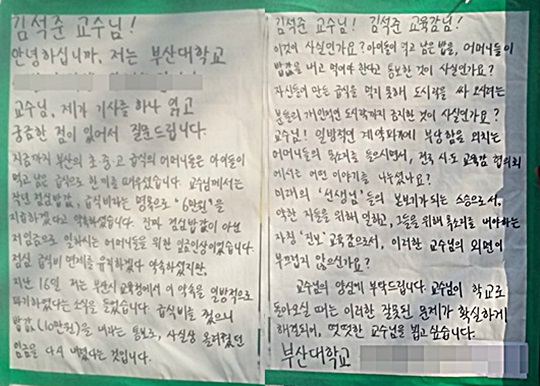 김석준 교수님!
안녕하십니까, 저는 부산대학교
교수님, 제가 기사를 하나 읽고
궁금한 점이 있어서 질문드립니다.
지금까지 부산의 초·중·고 급식의 어머니들은 아이들이
먹고 남은 급식으로 한 끼를 때우셨습니다. 교수님께서는
작년 점심밥값, 급식비라는 명목으로 "6만원"을
지급하겠다고 약속하셨습니다. 진짜 점심밥값이 아닌
저임금으로 일하시는 어머니들을 위한 임금인상이었습니다.
점심 급식비 면제를 유지하겠다 약속하셨지만,
지난 16일 저는 부산시 교육청에서 이 약속을 일방적으로
파기하였다는 소식을 들었습니다. 급식비를 줬으니
밥값(10만원)을 내라는 통보로, 사실상 올려줬던
임금을 다시 내렸다는 것입니다.
김석준 교수님! 김석준 교육감님!
이것이 사실인가요? 아이들이 먹고 남은 밥을, 어머니들이
밥값을 내고 먹어야 한다고 통보한 것이 사실인가요?
자신들이 만든 급식을 먹지 못해 도시락을 싸 오시려는
분들의 개인적인 도시락까지 금지한 것이 사실인가요?
교수님! 일방적인 계약파기에 부당함을 외치는
어머니들의 목소리를 들으시면서, 전국 시도 교육감 협의회
에서는 어떤 이야기를 나누셨나요?
미래의 '선생님'들의 본보기가 되는 스승으로서,
약한 자들을 위해 일하고, 그들을 위해 목소리를 내야하는
자칭 '진보' 교육감으로서, 이러한 교수님의 외면이
부끄럽지 않으신가요?
교수님의 양심에 부탁드립니다. 교수님이 학교로
돌아오실 때는 이러한 잘못된 문제가 확실하게
해결되어, 떳떳한 교수님을 뵙고싶습니다.
부산대학교